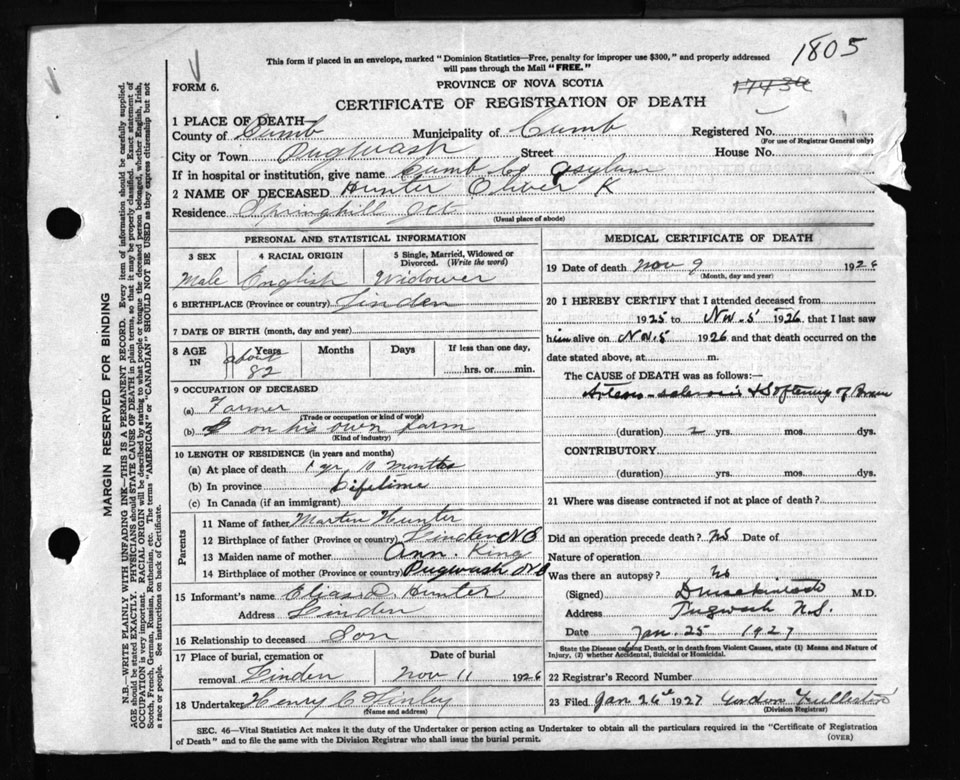 1805
This form if placed in an envelope, marked "Dominion Statistics—Free, penalty for improper use $300," and properly addressed
will pass through the Mail "FREE."
FORM 6.
PROVINCE OF NOVA SCOTIA
CERTIFICATE OF REGISTRATION OF DEATH
1 PLACE OF DEATH—
County of Cumb Municipality of Cumb Registered No.
(For use of Registrar General only)
City or Town Pugwash Street House No.
If in hospital or institution, give name Cumb Co Asylum
2 NAME OF DECEASED Hunter Oliver K
Residence Springhill Jct
(Usual place of abode)
PERSONAL AND STATISTICAL INFORMATION
3 SEX 4 RACIAL ORIGIN 5 Single, Married, Widowed or Divorced. (Write the word)
Male English Widower
6 BIRTHPLACE (Province or country) Linden
7 DATE OF BIRTH (month, day and year)
8 AGE IN Years Months Days If less than one day,
about 82 hrs. or min.
9 OCCUPATION OF DECEASED
(a) Farmer
(Trade or occupation or kind of work)
(b) on his own farm
(Kind of industry)
10 LENGTH OF RESIDENCE (in years and months)
(a) At place of death 1 yr. 10 months
(b) In province Lifetime
(c) In Canada (if an immigrant)
Parents
11 Name of father Marten Hunter
12 Birthplace of father (Province or country) Linden NS
13 Maiden name of mother Ann. King
14 Birthplace of mother (Province or country) Pugwash NS
15 Informant's name Elias D. Hunter
Address Linden
16 Relationship to deceased Son
17 Place of burial, cremation or removal Linden
Date of burial Nov 11 1926
18 Undertaker Henry C
(Name and address)
MEDICAL CERTIFICATE OF DEATH
19 Date of death Nov 9 1926
(Month, day and year)
20 I HEREBY CERTIFY that I attended deceased from
1925 to Nov. 5 1926, that I last saw
him alive on Nov. 5 1926 and that death occurred on the
date stated above, at m.
The CAUSE of DEATH was as follows:—
Arterio-sclerosis & Softening of Brain
(duration) 2 yrs. mos. dys.
CONTRIBUTORY
(duration) yrs. mos. dys.
21 Where was disease contracted if not at place of death?
Did an operation precede death? No Date of
Nature of operation
Was there an autopsy? No
(Signed) M.D.
Address Pugwash N.S.
Date Jan. 25 1927
State the Disease causing Death, or in death from Violent Causes, state (1) Means and Nature of
Injury, (2) whether Accidental, Suicidal or Homicidal.
22 Registrar's Record Number
23 Filed Jan 26th 1927 Gordon
(Division Registrar)
SEC. 46—Vital Statistics Act makes it the duty of the Undertaker or person acting as Undertaker to obtain all the particulars required in the "Certificate of Registration
of Death" and to file the same with the Division Registrar who shall issue the burial permit.
(OVER)
MARGIN RESERVED FOR BINDING
N.B.—WRITE PLAINLY WITH UNFADING INK—THIS IS A PERMANENT RECORD. Every item of information should be carefully supplied.
AGE should be stated EXACTLY. PHYSICIANS should STATE CAUSE OF DEATH in plain terms, so that it may be properly classified. Exact statement of
OCCUPATION is very important. RACIAL ORIGIN will be described by stating to what people or tongue the deceased person belonged, whether English, Irish,
Scotch, French, German, Russian, Ruthenian, etc. The terms "AMERICAN" or "CANADIAN" SHOULD NOT BE USED as they express citizenship but not
a race or people. See instructions on back of Certificate.